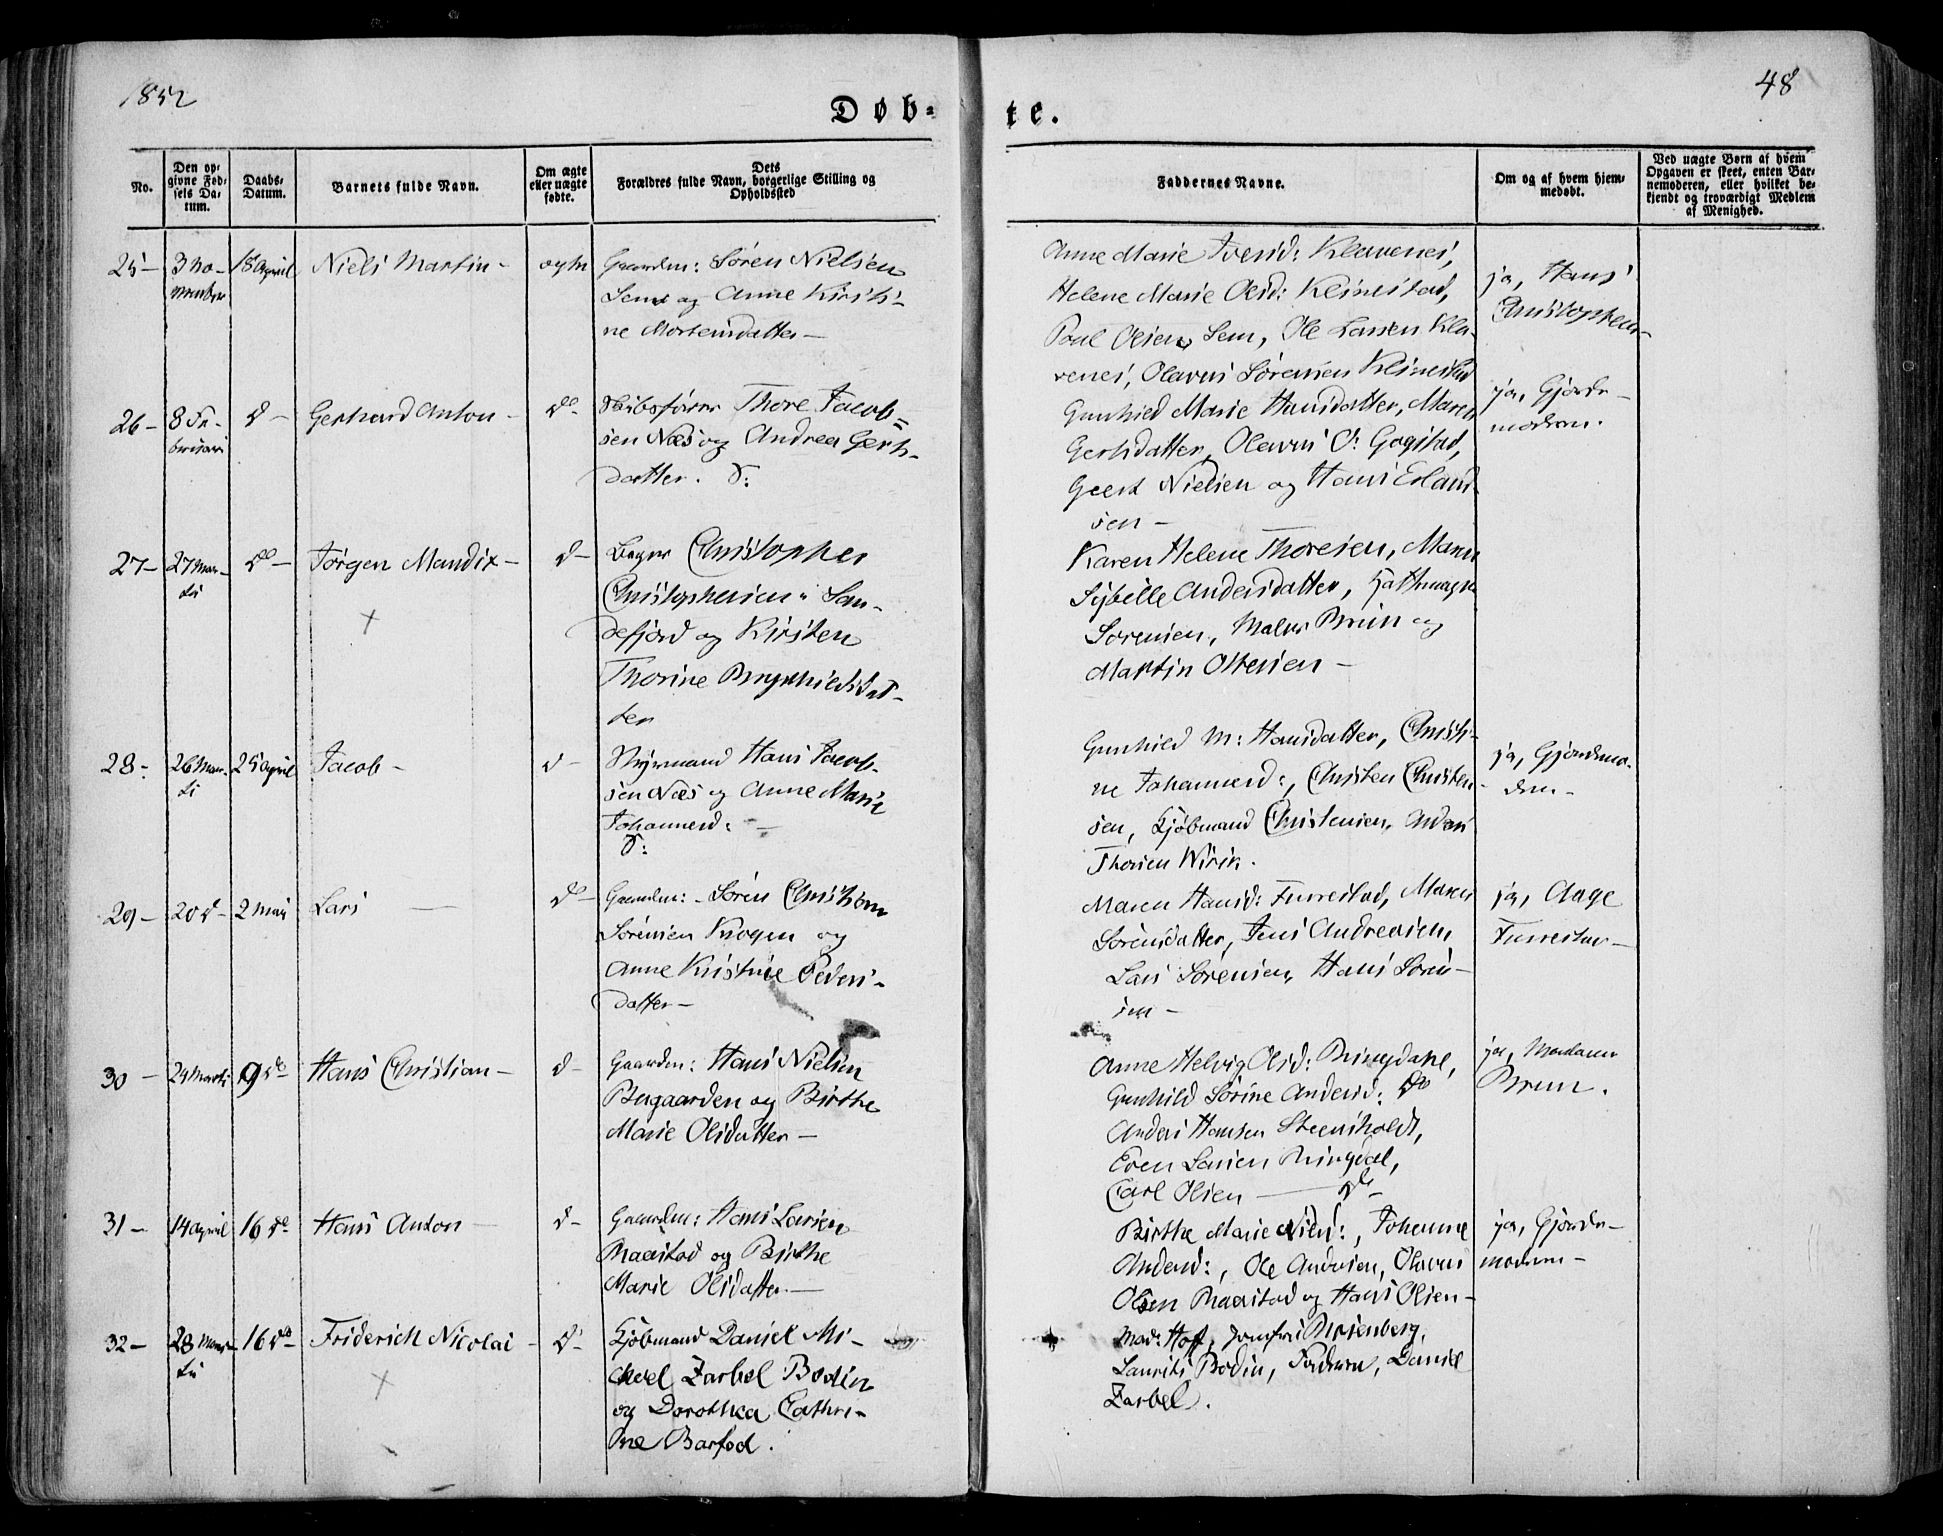 1852
48
Døb-
te.
No.
Den op-
givne Fød-
sels Da-
tum.
Daabs-
Datum.
Barnets fulde Navn.
Om ægte
eller uægte
fødte.
Dets
Forældres fulde Navn, borgerlige Stilling og
Opholdssted
Faddernes Navne.
Om og af hvem hjem-
medøbt.
Ved uægte Børn af hvem
Opgaven er skeet, enten Bar-
nemoderen, eller hvilket be-
kjendt og troværdigt Medlem
af Menighed.
25 - 3 No-
vember
18 April
Niels Martin -
ægte
Gaardm: Søren Nielsen
Sem og Anne Kirsti-
ne Mortensdatter -
Anne Marie Iversd: Klavenes,
Helene Marie Olsd: Klinestad,
Poul Olsen Sem, Ole Larsen Kla-
venes, Olavus Sørensen Klinestad
ja, Hans
Christophersen
26 - 8 Fe-
bruari
d -
Gerhard Anton -
do -
Skibsfører Thore Jacob-
sen Næs og Andrea Gerts-
datter. d:
Gunhild Marie Hansdatter, Maren
Gertsdatter, Olavus O: Gogstad,
Geert Nielsen og Hans Erland-
sen -
ja, Gjorde-
moderen.
27 - 27 Mar-
ti
do -
Jørgen Mandix -
d -
Bager Christopher
Christophersen i San-
defjord og Kirsten
Thorine Brynhildsdat-
ter
Karen Helene Thoresen, Maren
Sybille Andersdatter,
Sørensen, Maler Bruun og
Martin Ottesen -
28 - 26 Mar-
ti
25 April
Jacob -
d -
Styrmand Hans Jacob-
sen Næs og Anne Marie
Johannesd: -
d:
Gunhild M: Hansdatter, Christi-
ne Johannesd:, Christen Christen-
sen, Kjøbmand Christensen, Anders
Thorsen Virik.
ja, Gjordemo-
deren -
29 - 20 d - 2 Mai
Lars -
do -
Gaardm: Søren Christian
Sørensen Krogen og
Anne Kristine Peders-
datter -
Maren Hansd: Furrestad, Maren
Sørensdatter, Jens Andreasen,
Lars Sørensen, Hans Søren-
sen -
ja, Aage
Furrestad -
30 - 24 Marti 9 do -
Hans Christian -
d -
Gaardm: Hans Nielsen
Bergaarden og Birthe
Marie Olsdatter -
Anne Helvig Olsd: Ringdahl,
Gunhild Sørine Andersd: do
Anders Hansen Steensholdt,
Even Larsen Ringdal,
Carl Olsen - do -
ja, Madam
Bruun.
31 - 14 April 16 do
Hans Anton -
d -
Gaardm: Hans Larsen
Raastad og Birthe
Marie Olsdatter -
Birthe Marie Nielsd:, Johanne
Andersd:, Ole Andersen, Olavus
Olsen Raastad og Hans Olsen -
ja, Gjorde-
moderen -
32 - 28 Mar-
ti
16 do -
Friderich Nicolai -
d -
Kjøbmand Daniel Mi-
chael Zarbel Bodin
og Dorothea Cathri-
ne Barfod.
Mad: Hoff, Jomfru Rosenberg,
Laurits Bodin, Faderen, Daniel
Zarbel.